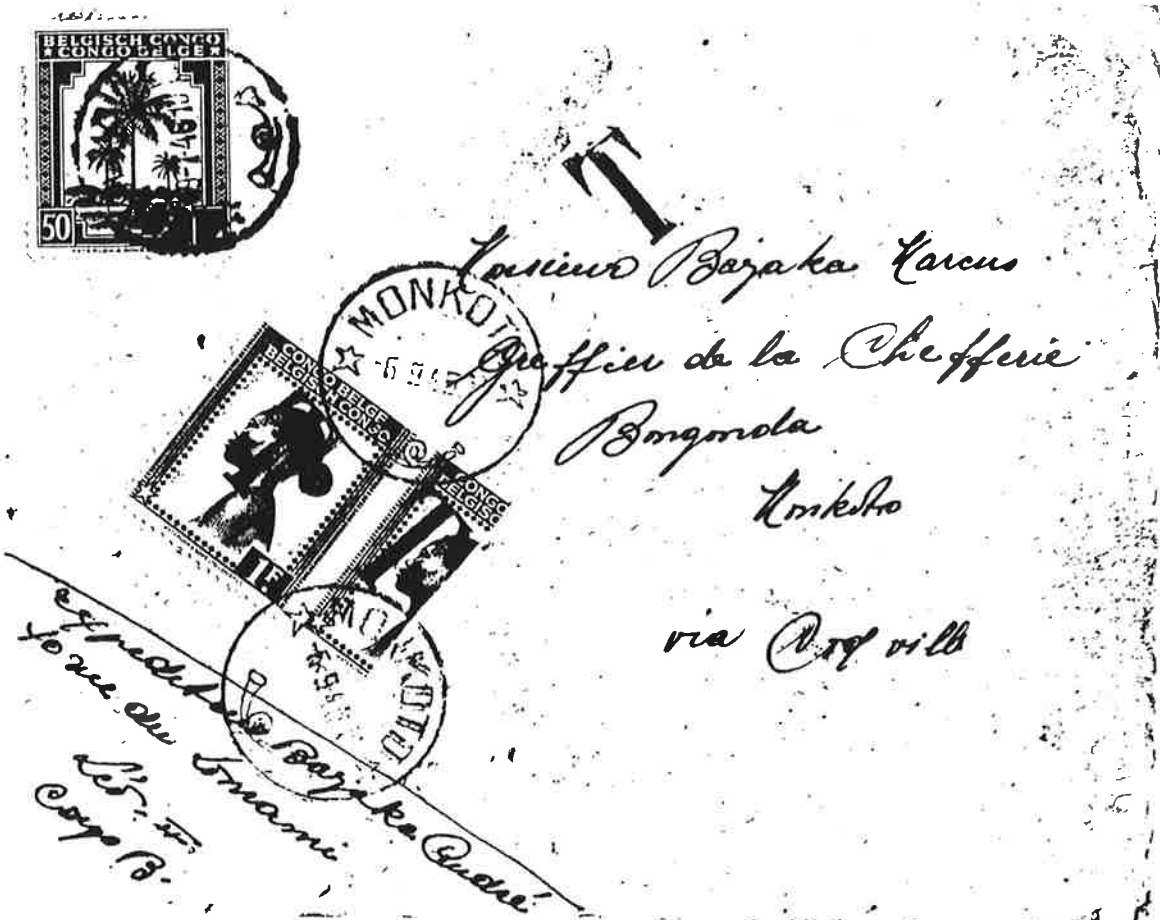 BELGISCH CONGO
★ CONGO BELGE ★
50
T
Monsieur Bazaka Marcus
Greffier de la Chefferie
Bongonda
Monkoto
via Coq ville
MONKOTO
-6 9 4
CONGO BELGE
BELGISCH CONGO
1F
CONGO
BELGISC
MONKOTO
Expéditeur Bazaka André
rue du Lomami
Léo.
Congo B.